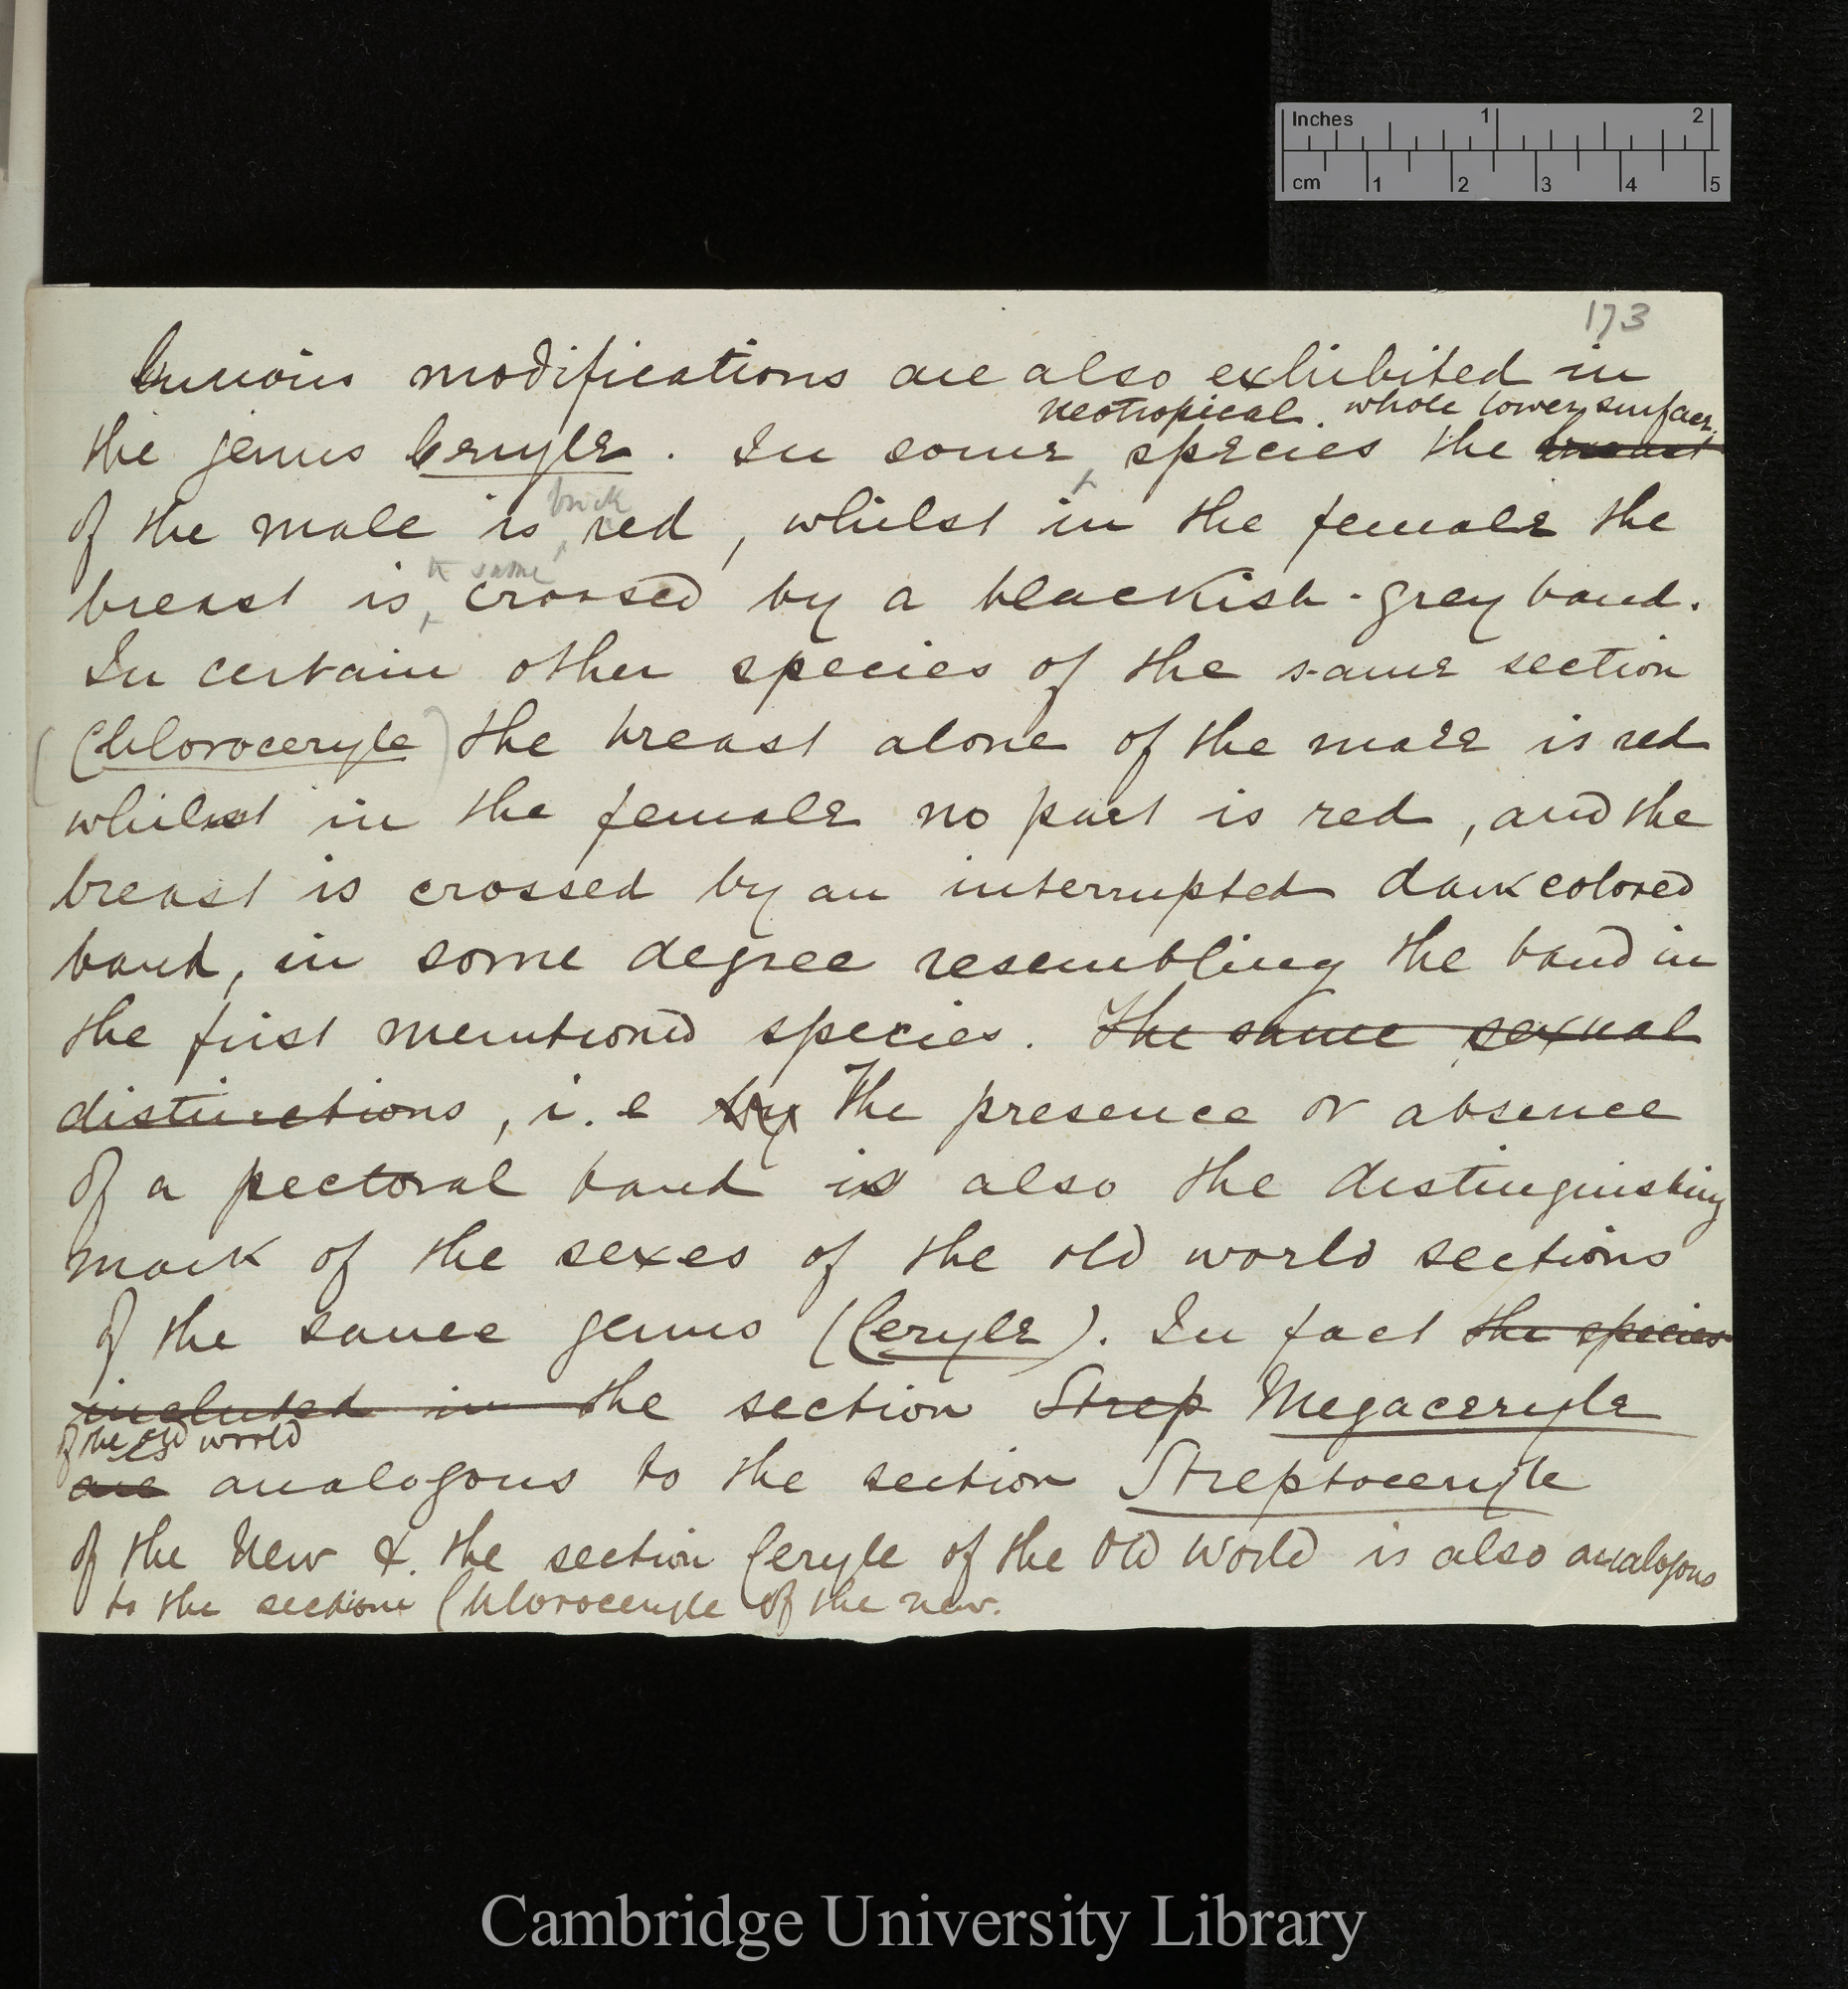 Inches 1 2
cm 1 2 3 4 5
173
Curious modifications are also exhibited in
neotropical whole lower surface
the genus Ceryle. In some species the breast
brick
of the male is red, whilst in the female the
same
breast is crossed by a blackish-grey band.
In certain other species of the same section
(Chloroceryle) the breast alone of the male is red
whilst in the female no part is red, and the
breast is crossed by an interrupted dark colored
band, in some degree resembling the band in
the first mentioned species. The same sexual
distinctions, i.e by The presence or absence
of a pectoral band is also the distinguishing
mark of the sexes of the old world sections
of the same genus (Ceryle). In fact the species
included in the section Strep Megaceryle
of the old world
is
are analogous to the section Streptoceryle
of the New &. the section Ceryle of the Old World is also analogous
to the section Chloroceryle of the new.
Cambridge University Library